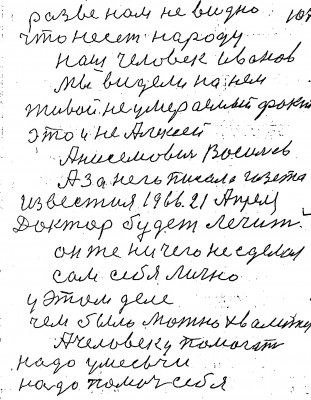 разве нам не видно 107
что несет народу
наш человек иванов
Мы видели на нем
живой не умераемый факт
Это и не Алексей
Анисемович Восимев
А за него писала газета
известия 1966. 21 Апрел
Доктор будет лечит.
он же ничего не сделал
сам себя лично
у этом деле
чем было можно хвалитца
А человеку помогат
надо умесьчи
надо помоч себя